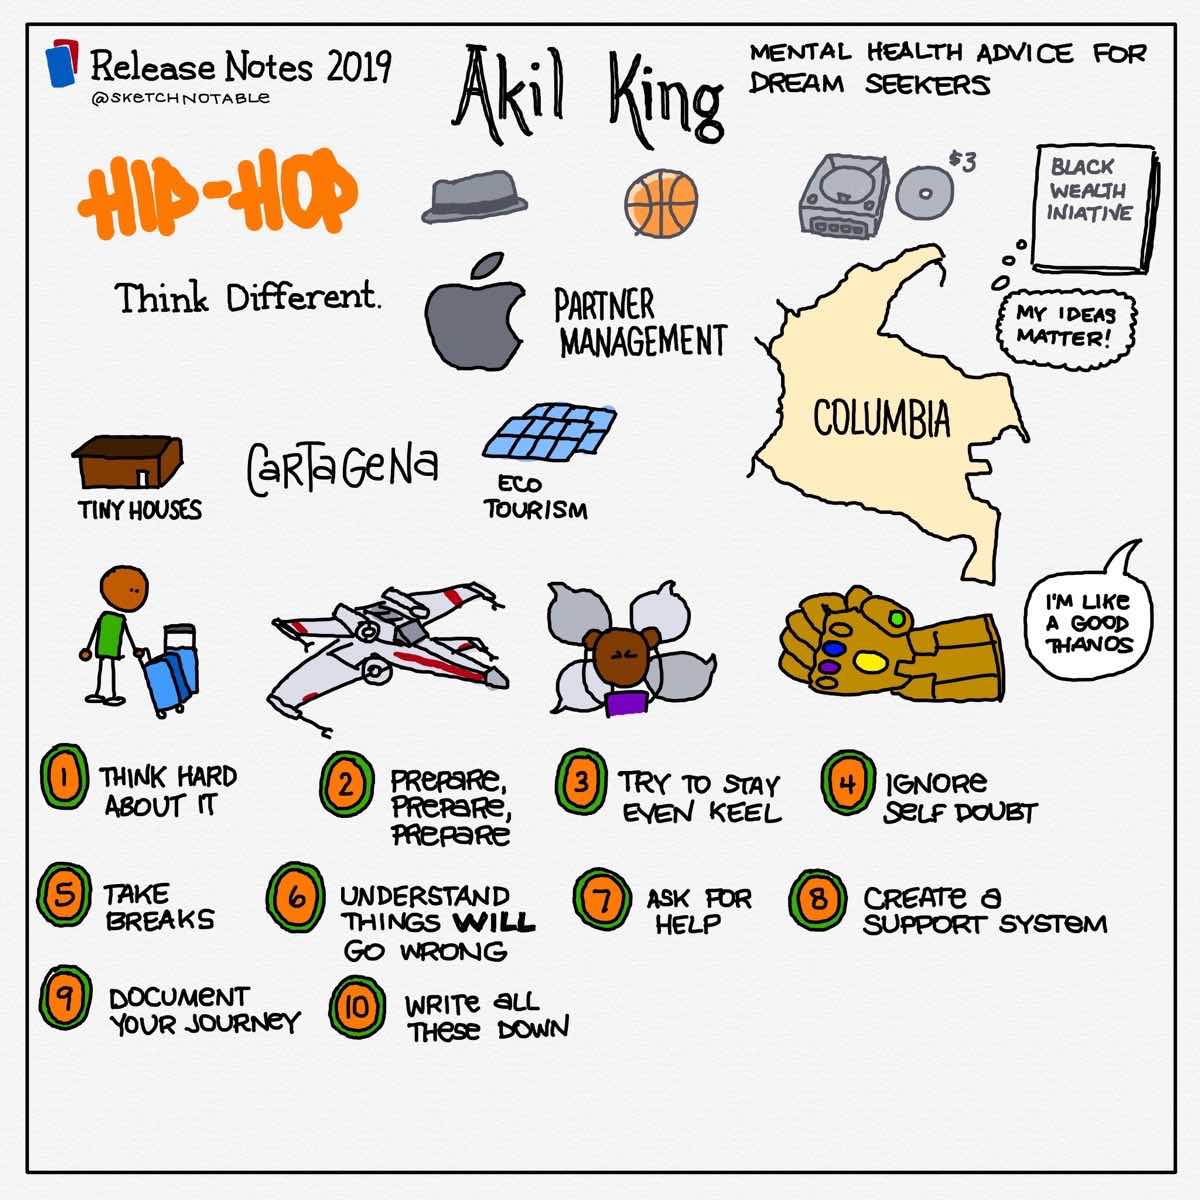 Release Notes 2019
@SKETCHNOTABLE
Akil King
MENTAL HEALTH ADVICE FOR
DREAM SEEKERS
HIP-HOP
$3
BLACK
WEALTH
INIATIVE
Think Different.
PARTNER
MANAGEMENT
MY IDEAS
MATTER!
COLUMBIA
TINY HOUSES
CARTAGENA
ECO
TOURISM
I'M LIKE
A GOOD
THANOS
1 THINK HARD
ABOUT IT
2 PREPARE,
PREPARE,
PREPARE
3 TRY TO STAY
EVEN KEEL
4 IGNORE
SELF DOUBT
5 TAKE
BREAKS
6 UNDERSTAND
THINGS WILL
GO WRONG
7 ASK FOR
HELP
8 CREATE A
SUPPORT SYSTEM
9 DOCUMENT
YOUR JOURNEY
10 WRITE ALL
THESE DOWN